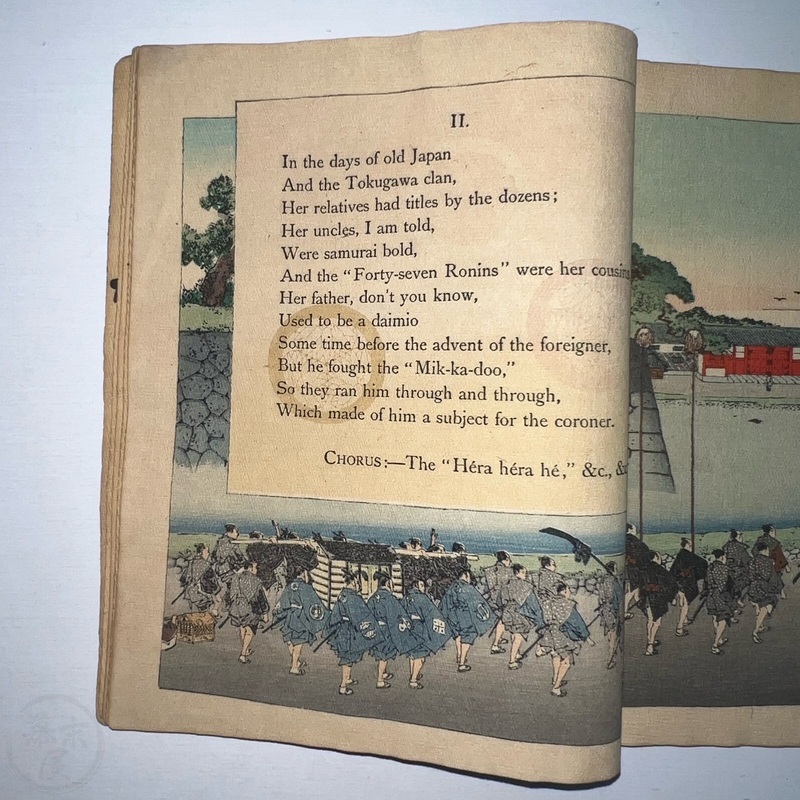 II.
In the days of old Japan
And the Tokugawa clan,
Her relatives had titles by the dozens;
Her uncles, I am told,
Were samurai bold,
And the "Forty-seven Ronins" were her cousins
Her father, don't you know,
Used to be a daimio
Some time before the advent of the foreigner,
But he fought the "Mik-ka-doo,"
So they ran him through and through,
Which made of him a subject for the coroner.
CHORUS:—The "Héra héra hé," &c.,